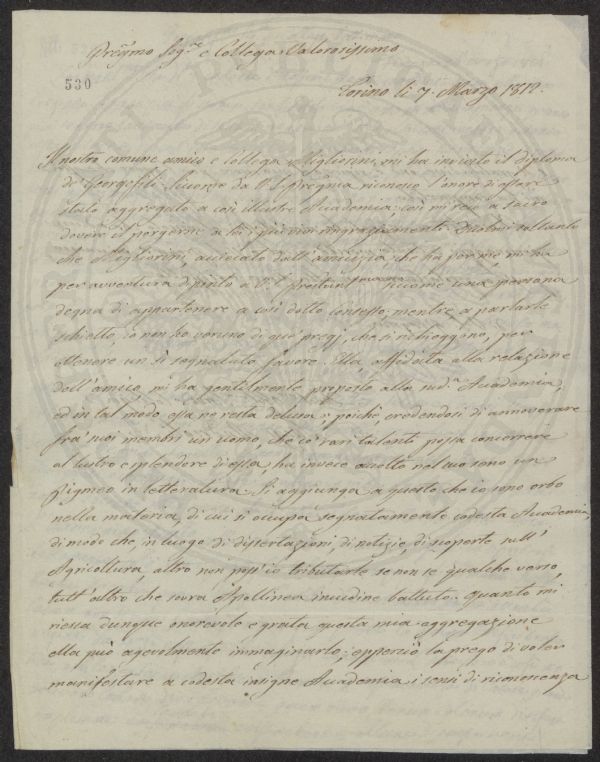 Preg̃mo Sig.re e Collega Valorosissimo
530
Torino li 7. Marzo 1812.
Il nostro comune amico e Collega Migliorini mi ha inviato il diploma
de' Georgofili. Siccome da V. S. Preg̃ma riconosco l'onore di essere
stato aggregato a così illustre Accademia; così mi reco a sacro
dovere il porgerne a lei i più vivi ringraziamenti. Duolmi soltanto
che Migliorini, acciecato dall'amicizia che ha per me, mi ha
per avventura dipinto a V. S. siccome una persona
degna di appartenere a così dotto consesso; mentre a parlarle
schietto, io non ho veruno di que' pregi, che si richieggono, per
ottenere un sì segnalato favore. Ella, affidata alla relazione
dell'amico, mi ha gentilmente proposto alla sud.a Accademia,
ed in tal modo essa ne resta delusa; poichè, credendosi di annoverare
fra' suoi membri un uomo, che co' rari talenti possa concorrere
al lustro e splendore di essa, ha invece accolto nel suo seno un
pigmeo in letteratura. Si aggiunga a questo che io sono orbo
nella materia, di cui si occupa segnatamente codesta Accademia,
di modo che, in luogo di dissertazioni, di notizie, di scoperte sull'
Agricoltura, altro non poss'io tributarle se non se qualche verso,
tutt'altro che sovra Apollinea incudine battuto. Quanto mi
riesca dunque onorevole e grata questa mia aggregazione
ella può agevolmente immaginarlo; epperciò la prego di voler
manifestare a codesta insigne Accademia i sensi di riconoscenza